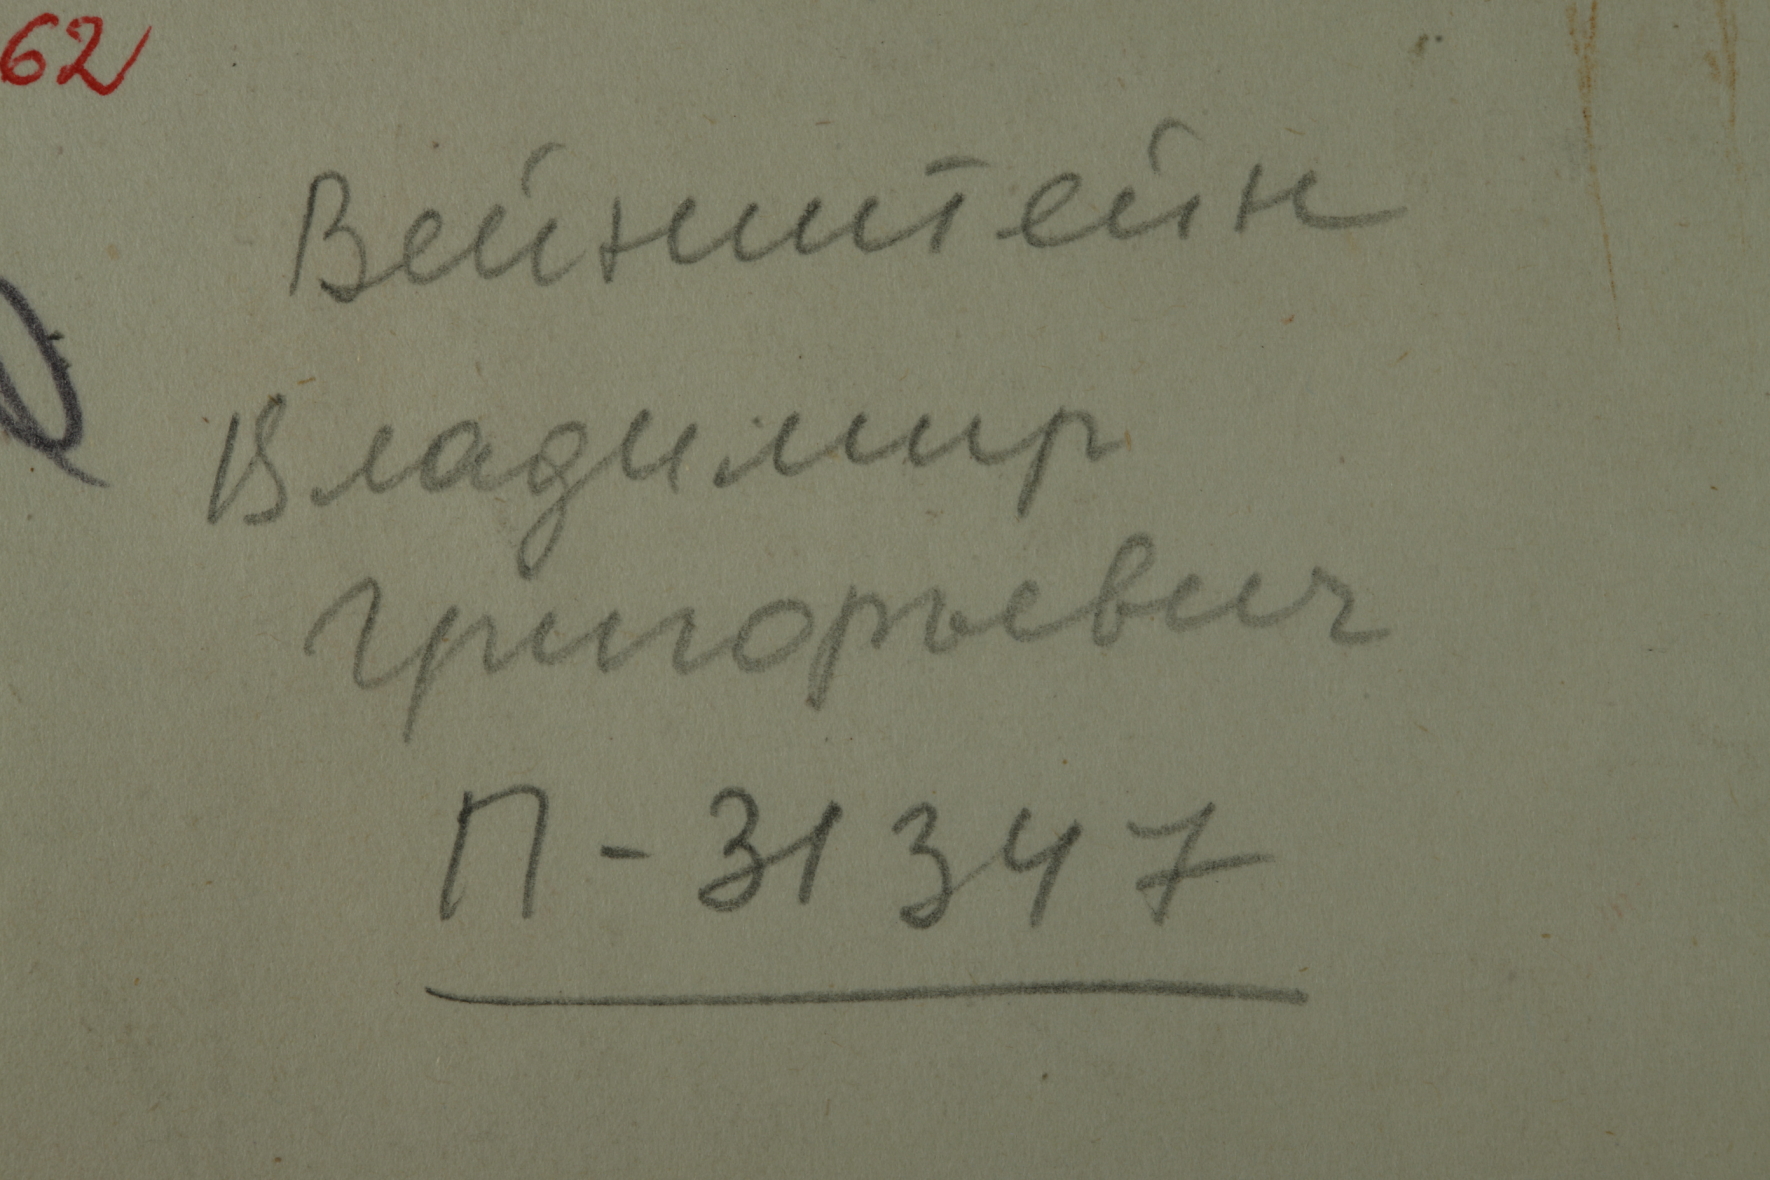 62
Вейнштейн
Владимир
Григорьевич
П-31347